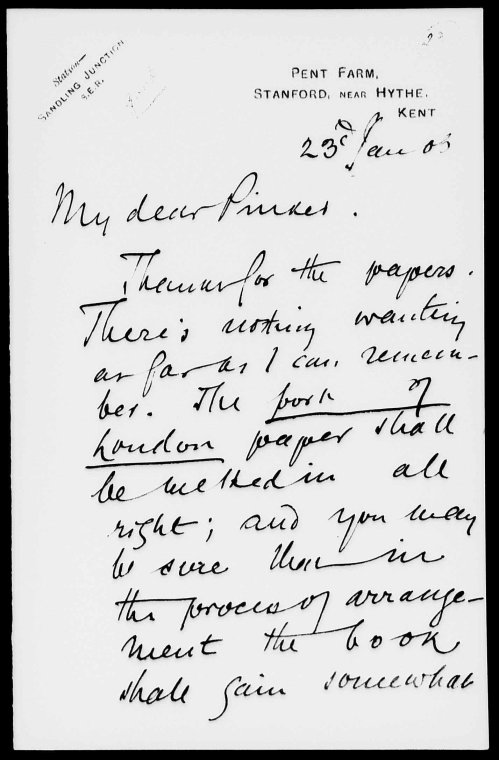 Station—
SANDLING JUNCTION
S.E.R.
PENT FARM,
STANFORD, NEAR HYTHE,
KENT
23d Jan 05
My dear Pinker.
Thanks for the papers.
There's nothing wanting
as far as I can remem-
ber. The port of
London paper shall
be melted in all
right; and you may
be sure that in
the process of arrange-
ment the book
shall gain somewhat